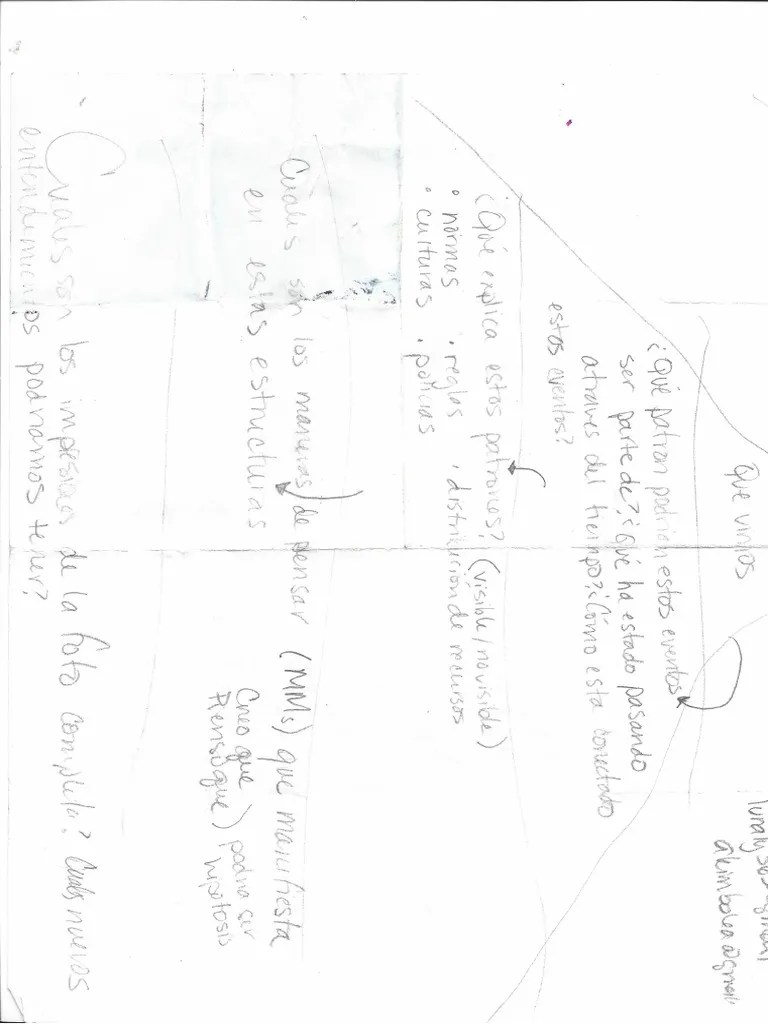 Que vimos
¿Qué patron podrian estos eventos
ser parte de? ¿Qué ha estado pasando
atraves del tiempo? ¿Cómo esta conectado
estos eventos?
¿Qué explica estos patrones? (visible/no visible)
• normas • reglas • distribución de recursos
• culturas • policias
Cuáles son los maneras de pensar (MMs) que manifiesta
en estas estructuras
Creo que
Pienso que) podria ser
hipotosis
Cuales son los impresiones de la foto completa? Cuales nuevos
entendimientos podriamos tener?
akimbolea@gmail